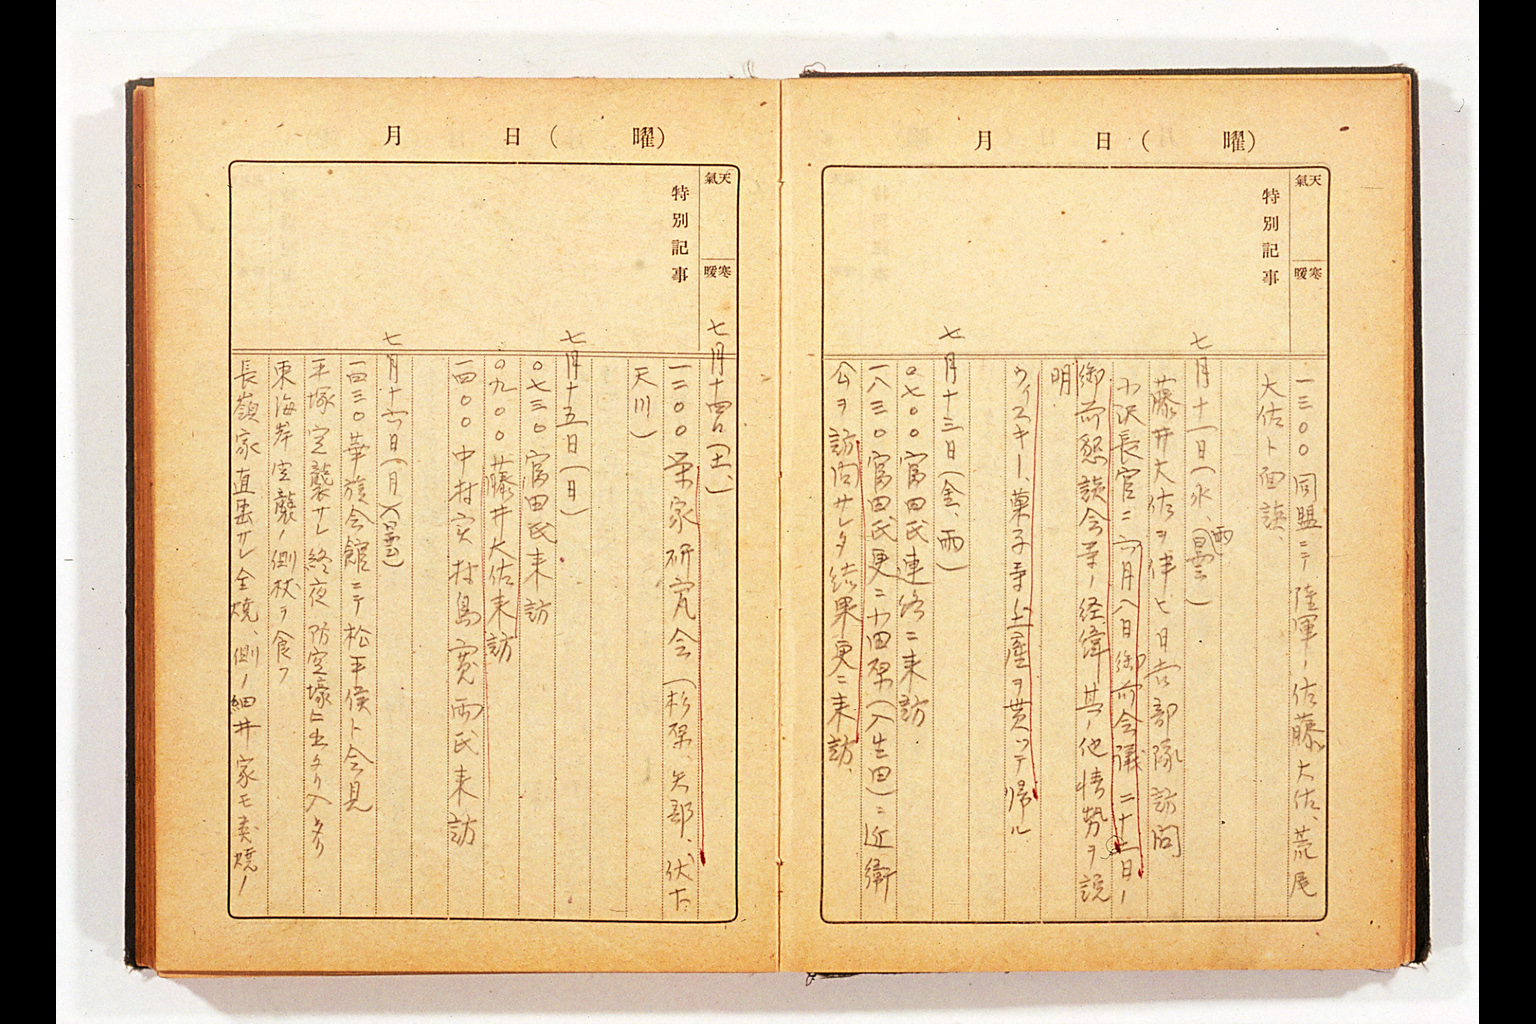 月 日（ 曜）
天氣
寒暖
特別記事
一三〇〇 同盟ニテ 陸軍ノ佐藤大佐、荒尾
大佐ト面談、
七月十一日（水、雨 曇）
藤井大佐ヲ伴ヒ日吉部隊訪問
小沢長官ニ六月八日御前会議 二十二日ノ
御前懇談会等ノ経緯其ノ他情勢ヲ説
明
ウィスキー、菓子等土産ヲ貰ッテ帰ル
七月十三日（金、雨）
〇七〇〇 富田氏連絡ニ来訪
一八三〇 富田氏更ニ小田原（入生田）ニ近衛
公ヲ訪問サレタ結果更ニ来訪、
月 日（ 曜）
天氣
寒暖
特別記事
七月十四日（土、）
一二〇〇 栄家研究会（杉原、矢部、伏下、
天川）
七月十五日（日）
〇七三〇 富田氏来訪
〇九〇〇 藤井大佐来訪
一四〇〇 中村実 村島寛両氏来訪
七月十六日（月）（曇）
一四三〇 華族会館ニテ松平侯ト会見
平塚空襲サレ終夜防空壕ニ出タリ入タリ
東海岸空襲ノ側杖ヲ食フ
長嶺家直撃サレ全焼、側ノ細井家モ類焼ノ